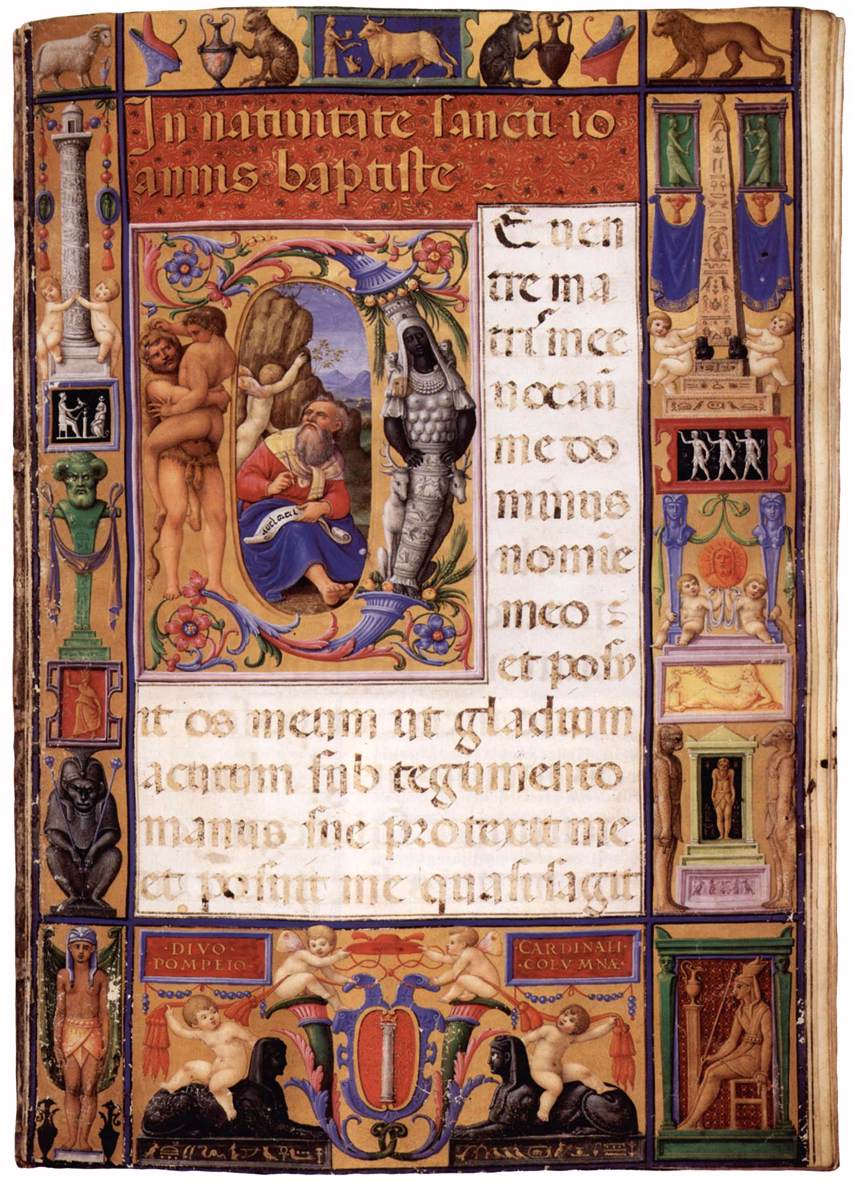 In natiuitate sancti io
annis baptiste
E uen
tre ma
triˢ mee
uocauit
me do
minus
nomīe
meo
et posu
it os meum ut gladium
acutum sub tegumento
manus sue protexit me
et posuit me quasi sagit
·DIVO·
POMPEIO·
CARDINALI·
·COLVMNÆ·